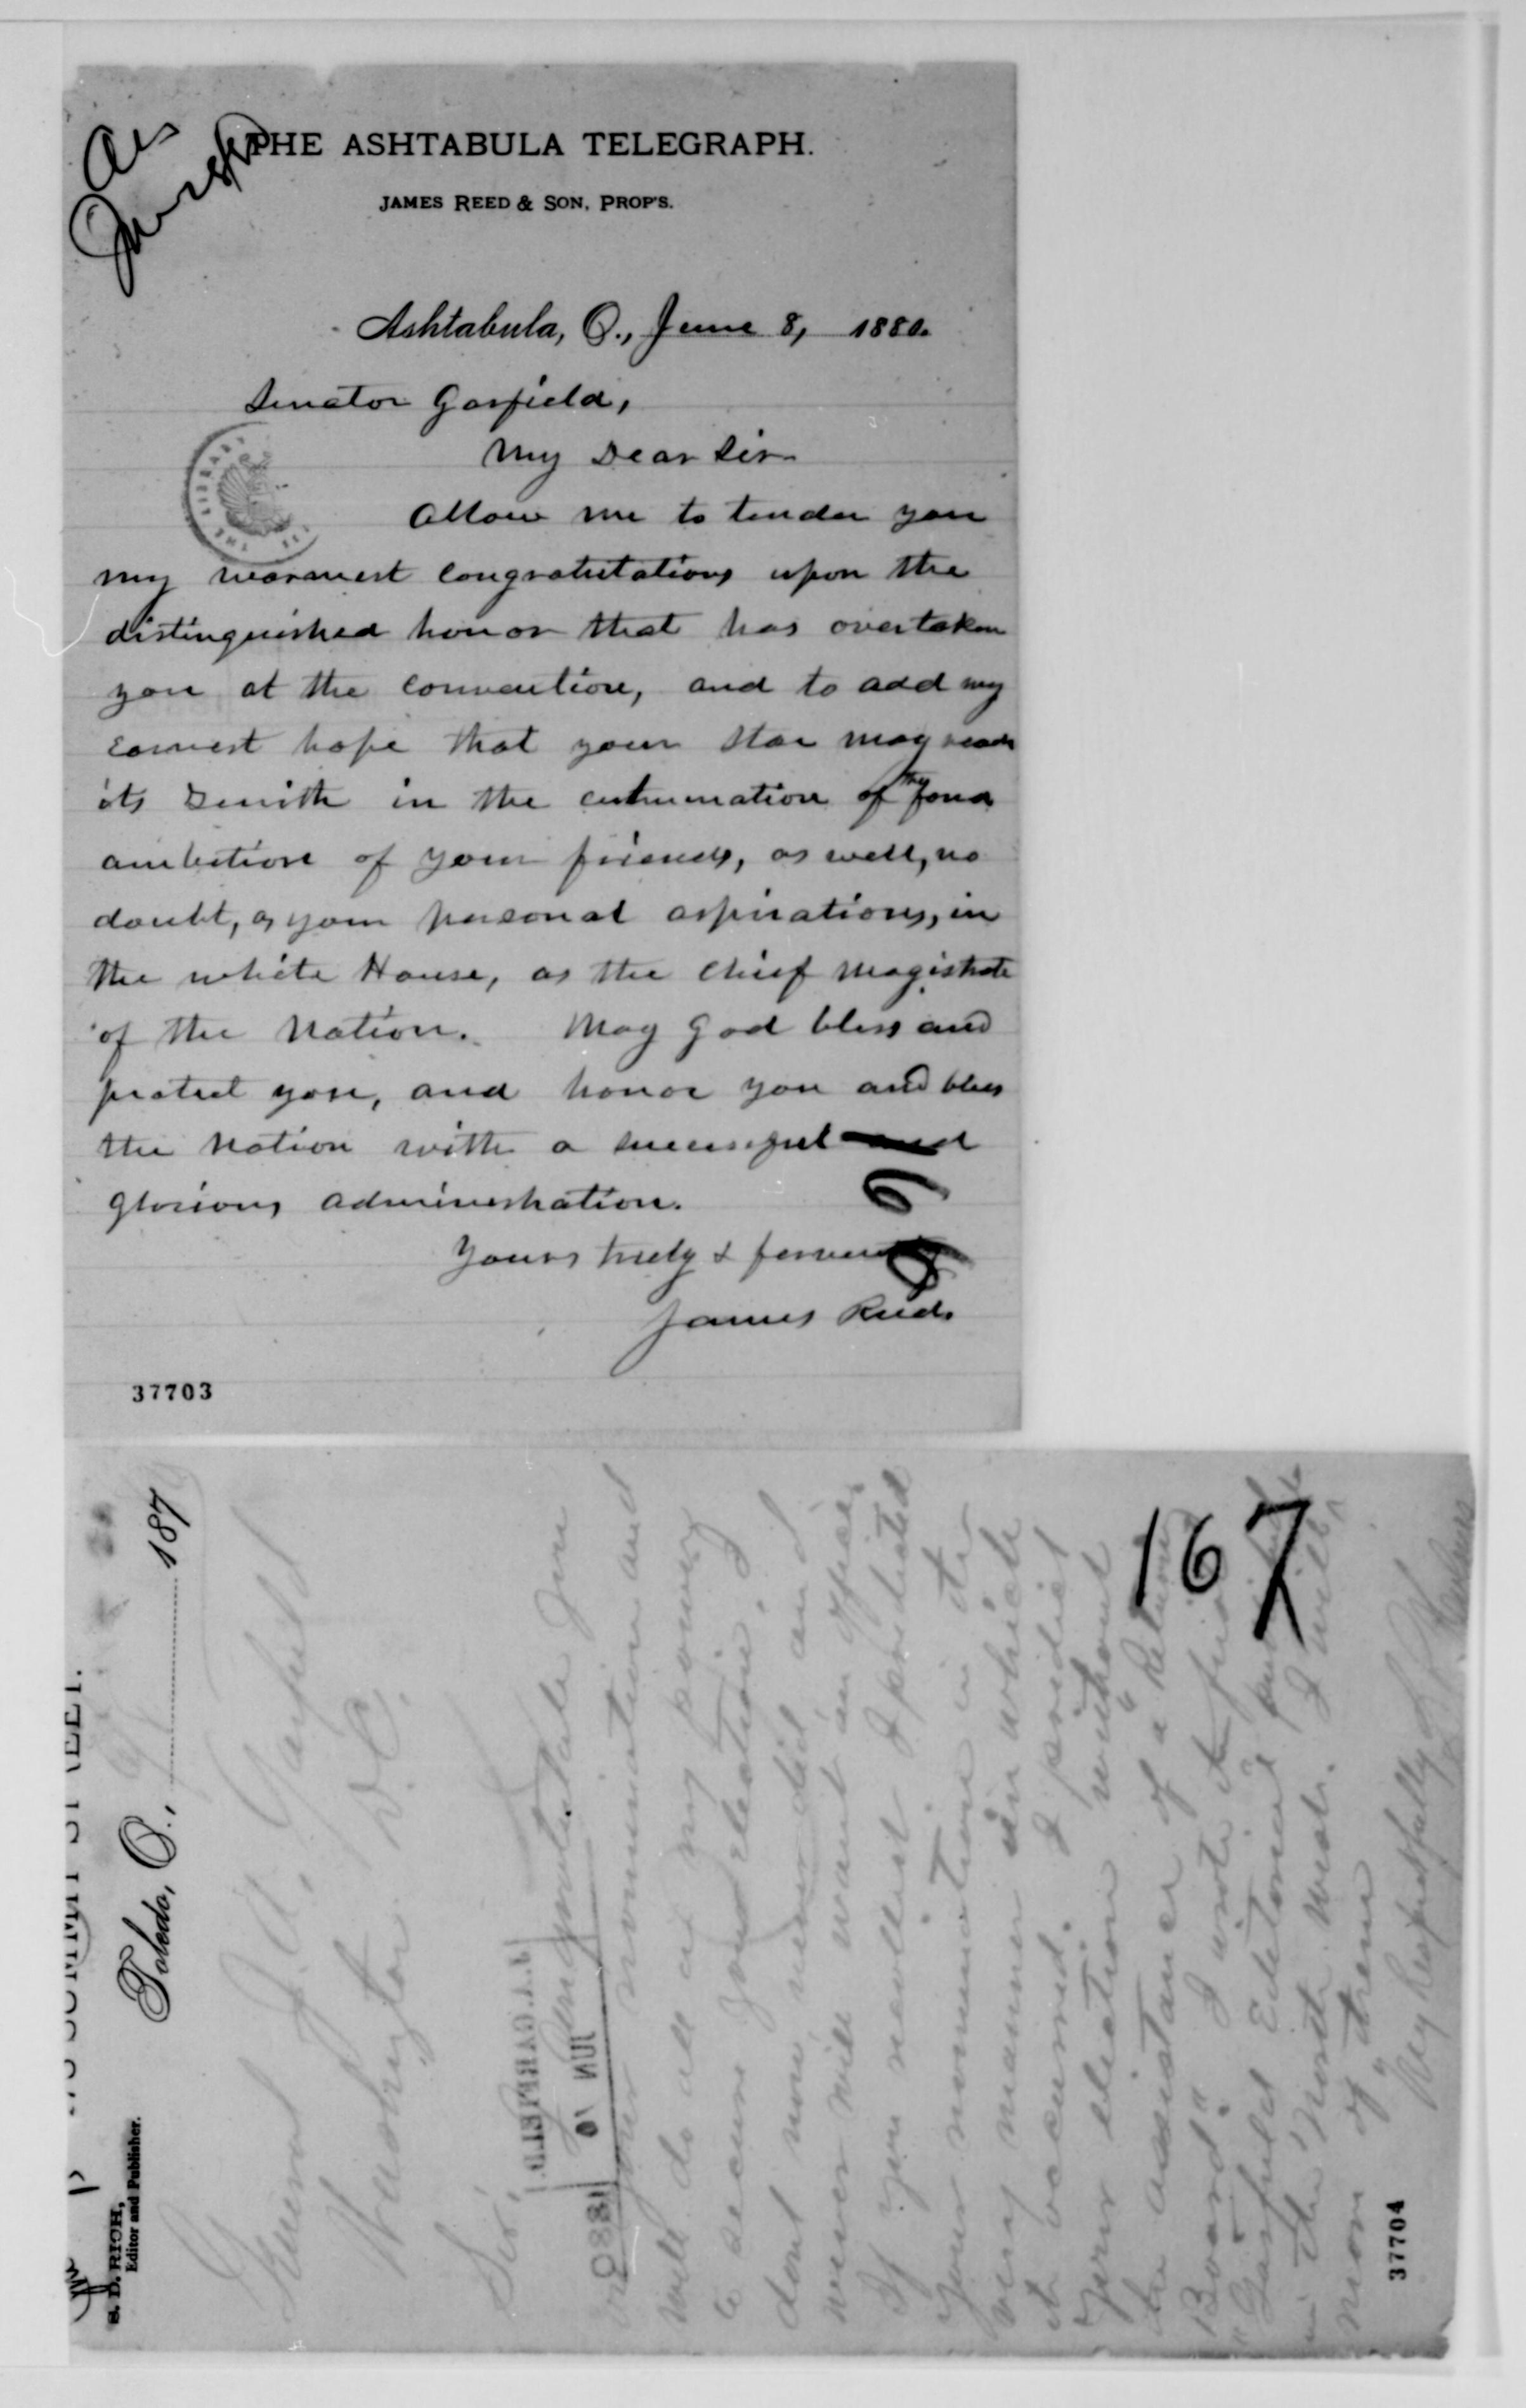 Ack
June 28/80
THE ASHTABULA TELEGRAPH.
JAMES REED & SON, PROP'S.
Ashtabula, O., June 8, 1880.
Senator Garfield,
My Dear Sir
Allow me to tender you
my warmest congratulations upon the
distinguished honor that has overtaken
you at the convention, and to add my
earnest hope that your star may reach
its Zenith in the culmination of the fond
ambition of your friends, as well, no
doubt, as your personal aspirations, in
the White House, as the chief Magistrate
of the Nation. May God bless and
protect you, and honor you and bless
the Nation with a successful and
glorious administration.
Yours truly & fervently
James Reed.
37703
167
SUMMIT STREET.
S. D. RICH,
Editor and Publisher.
Toledo, O., 187
General J. A. Garfield
Washington D.C.
Sir,
I Congratulate you
on your nomination and
will do all in my power
to secure your election. I
dont now, never did and
never will want an office.
If you recollect I predicted
your nomination in the
very manner in which
it occurred. I predict
your election without
the assistance of a "Returning
Board". I wrote the first
"Garfield Editorial published
in the North West. I will
more of them
Very Respectfully
J. A. GARFIELD.
JUN
1880
37704